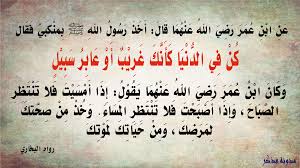 عَنِ ابْنِ عُمَرَ رَضِيَ اللهُ عَنْهُمَا قَالَ: أَخَذَ رَسُولُ اللهِ ﷺ بِمَنْكِبَيَّ فَقَالَ
كُنْ فِي الدُّنْيَا كَأَنَّكَ غَرِيْبٌ أَوْ عَابِرُ سَبِيْلٍ
وَكَانَ ابْنُ عُمَرَ رَضِيَ اللهُ عَنْهُمَا يَقُوْلُ: إِذَا أَمْسَيْتَ فَلَا تَنْتَظِرِ
الصَّبَاحَ ، وَإِذَا أَصْبَحْتَ فَلَا تَنْتَظِرِ الْمَسَاءَ. وَخُذْ مِنْ صِحَّتِكَ
لِمَرَضِكَ ، وَمِنْ حَيَاتِكَ لِمَوْتِكَ
رواه البخاري